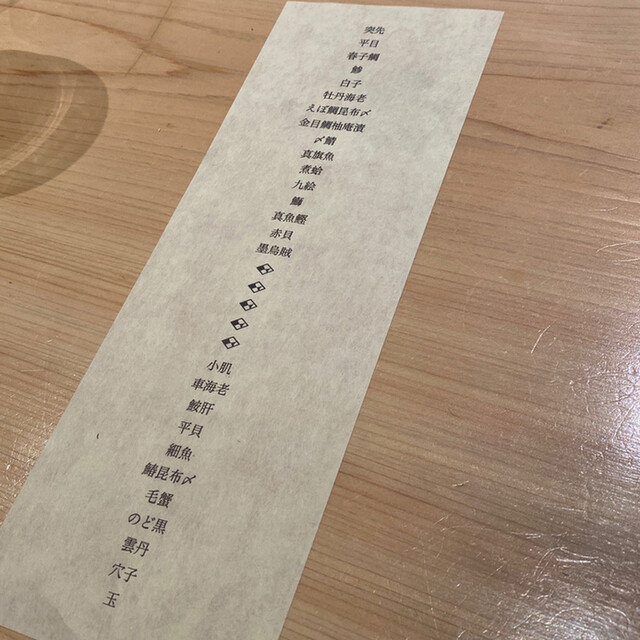 突先
平目
春子鯛
鯵
白子
牡丹海老
えぼ鯛昆布〆
金目鯛柚庵漬
〆鯖
真旗魚
煮蛤
九絵
鰤
真魚鰹
赤貝
墨烏賊
小肌
車海老
鮟肝
平貝
細魚
鰆昆布〆
毛蟹
のど黒
雲丹
穴子
玉